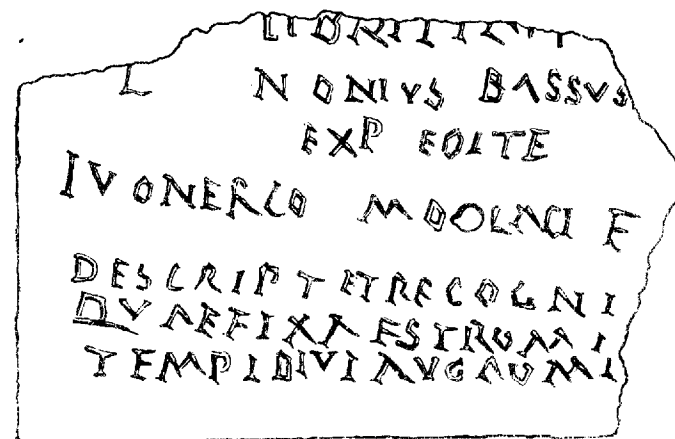 L NONIVS BASSVS
EXP EOITE
IVONERCO MOOLACI F
DESCRIPT ETRECOGNI
QVAEFIXAESTROM
TEMPIDIVIAVGADMI